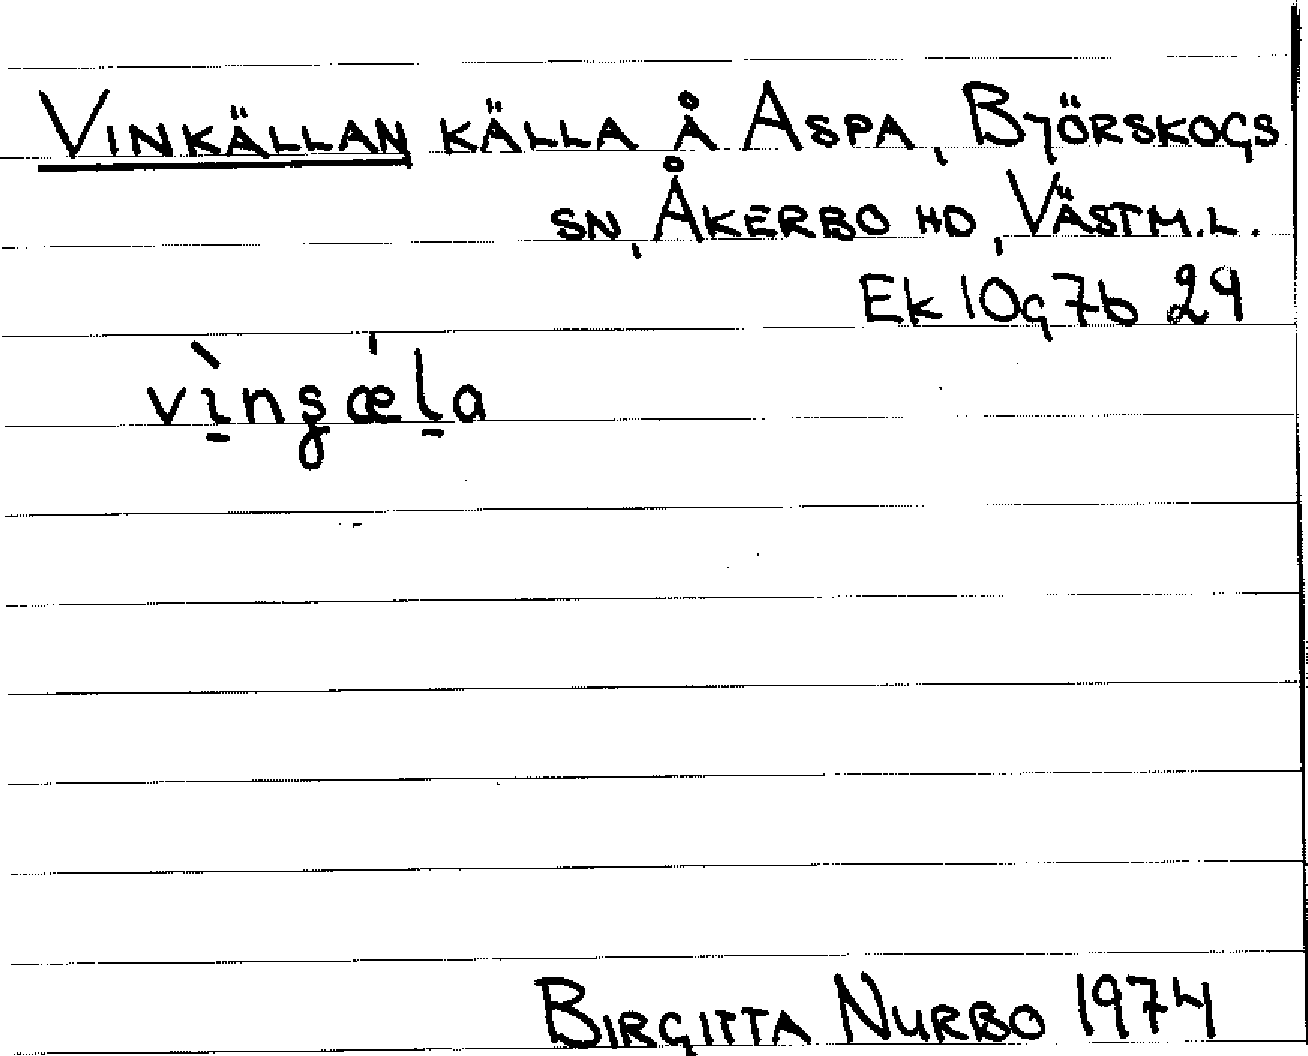 VINKÄLLAN KÄLLA Å ASPA, BJÖRSKOGS
SN, ÅKERBO HD, VÄSTM.L.
Ek 10g7b 29
vìngæla
BIRGITTA NURBO 1974